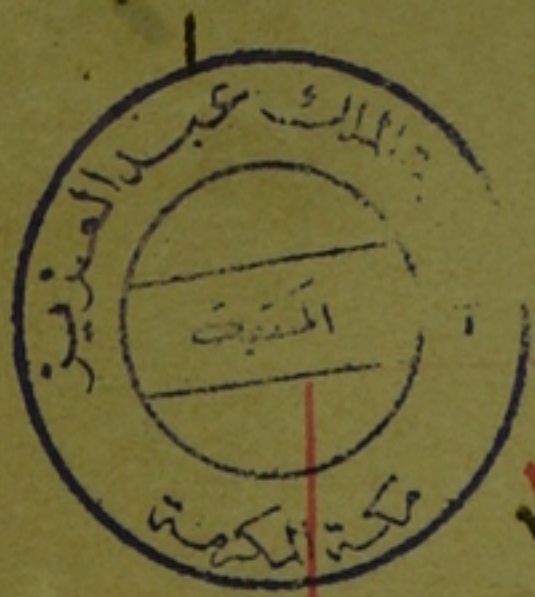 الملك عبد العزيز
المكتبة
مكة المكرمة